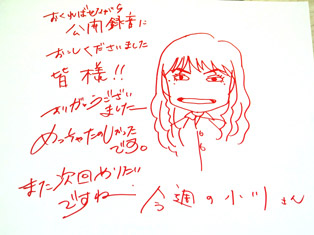 おくればせながら
公開録音に
おこしくださいました
皆様!!
ありがとうござい
ましたー
めっちゃたのしかった
です。
また次回やりたい
ですね
今週の小川さん